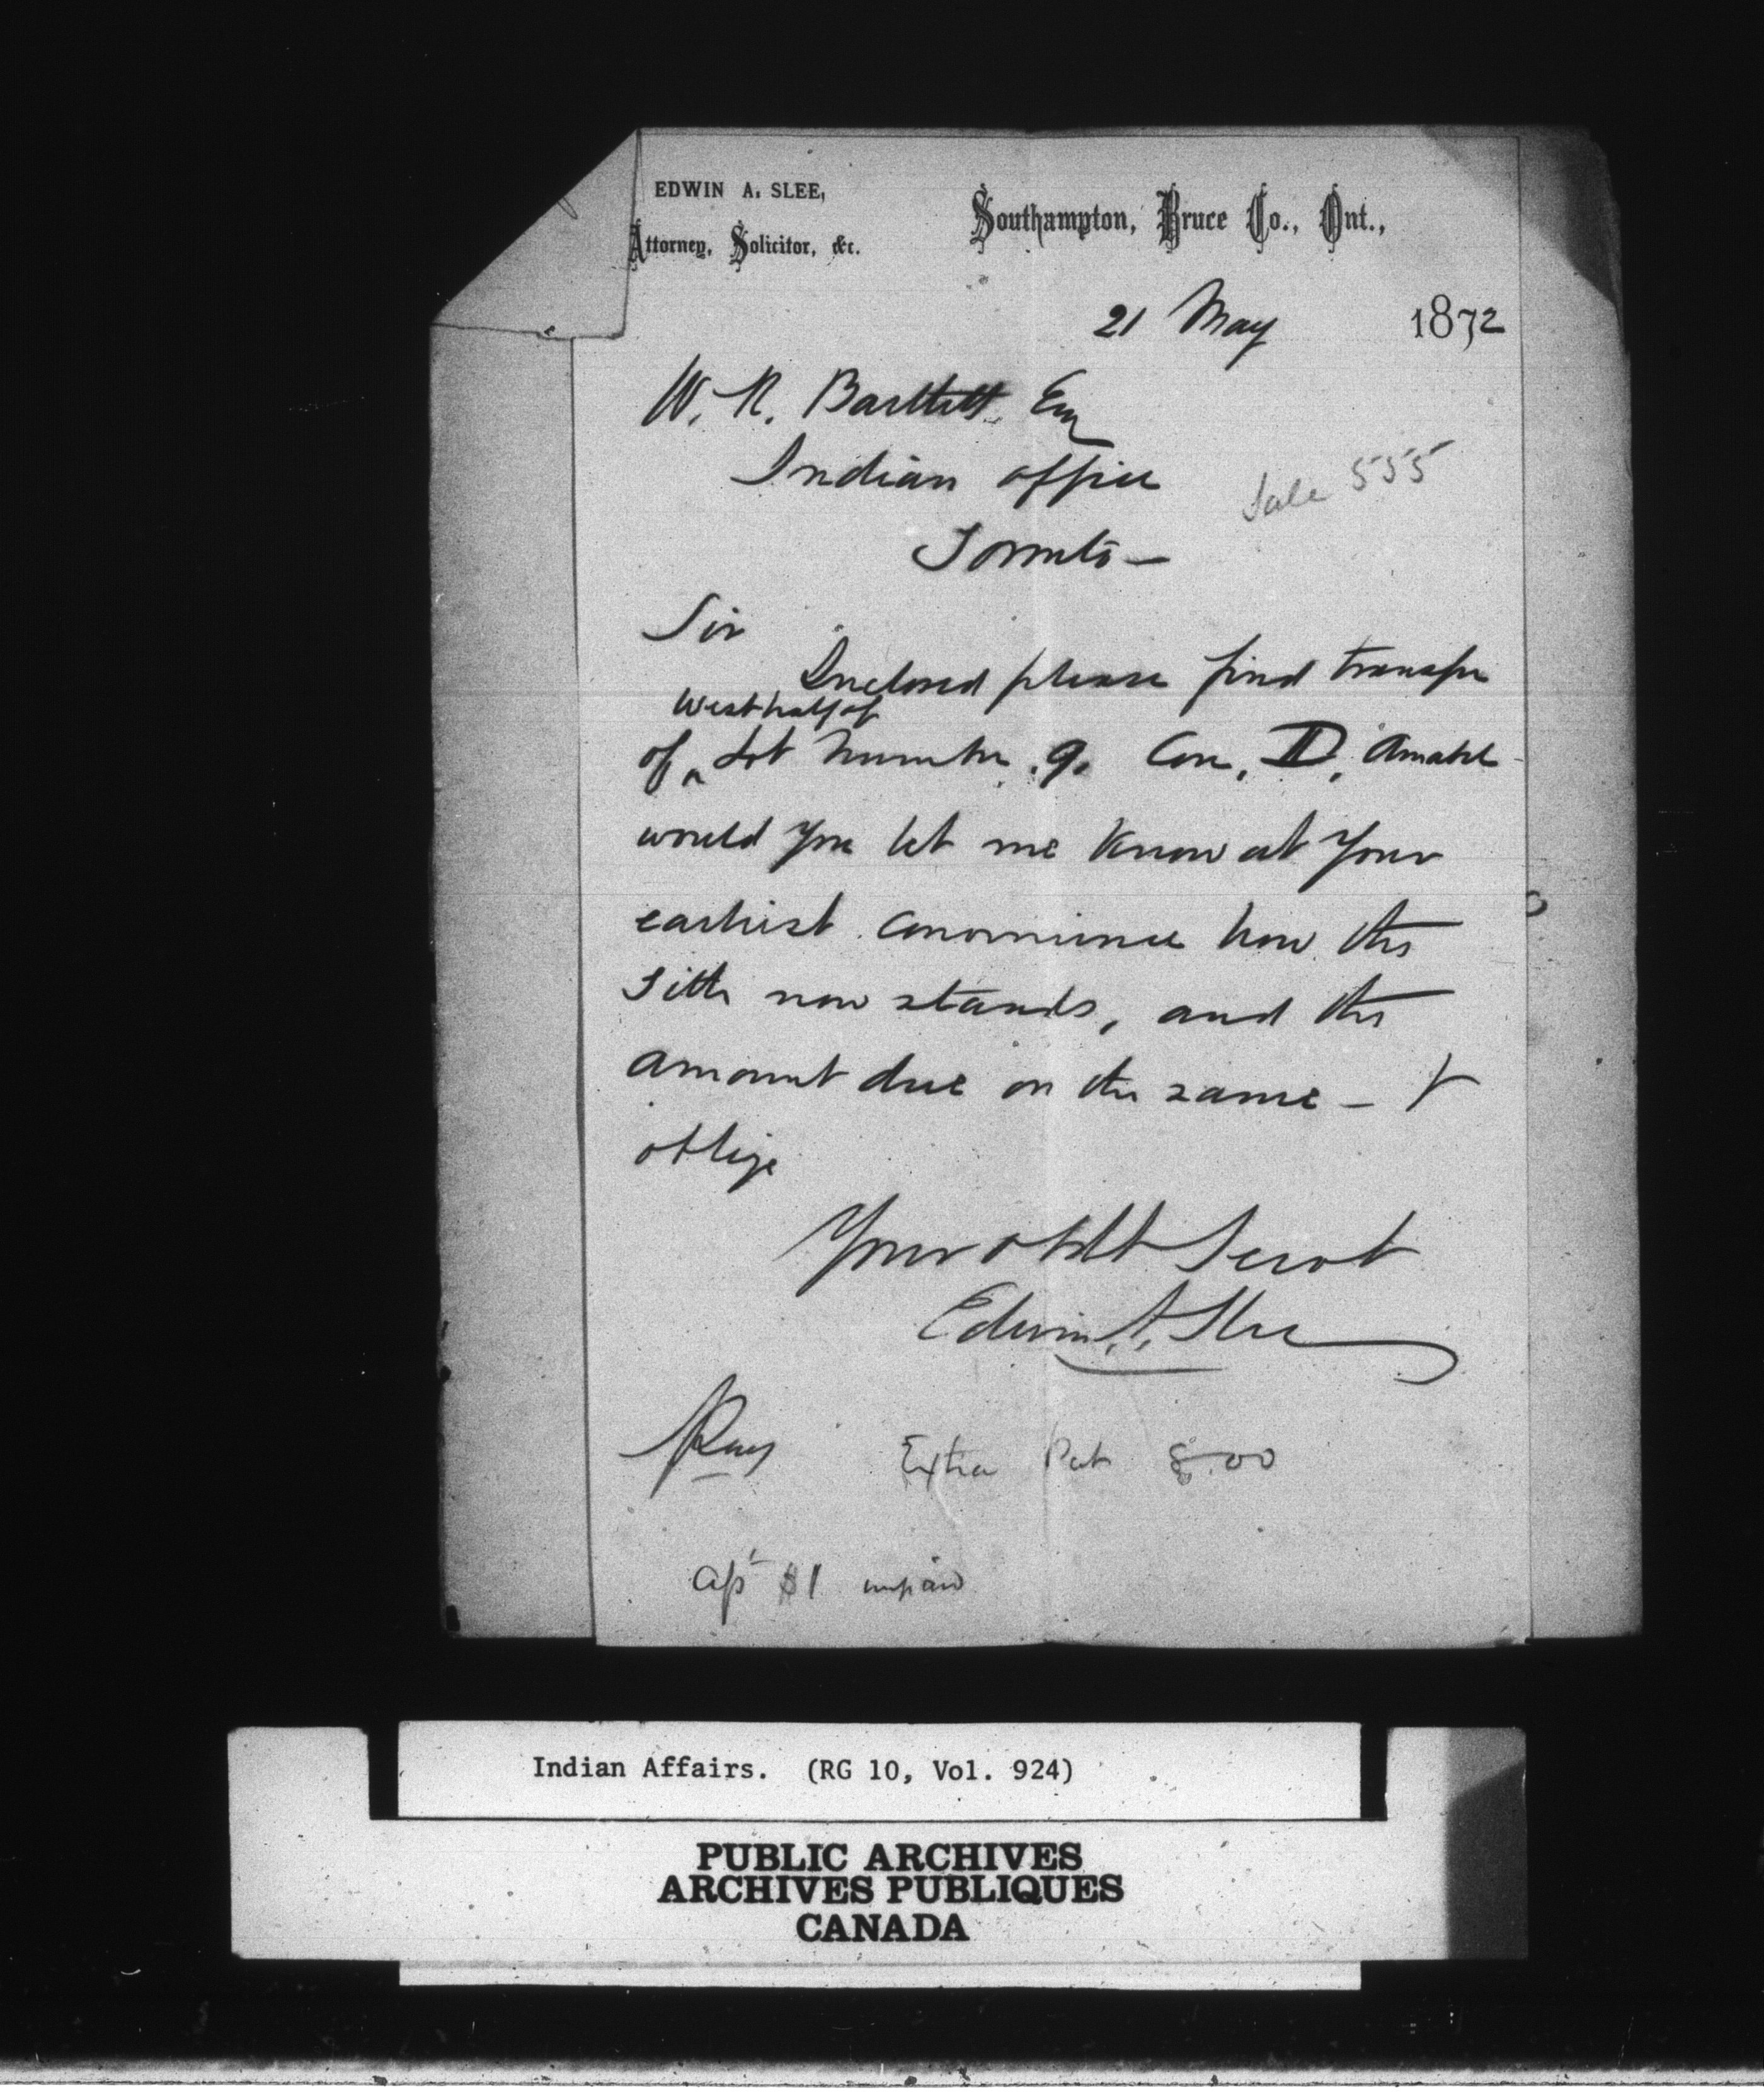 EDWIN A. SLEE,
Attorney, Solicitor, &c.
Southampton, Bruce Co., Ont.,
21 May 1872
W. R. Bartlett Esq
Indian office
Toronto —
Sale 555
Sir
Inclosed please find transfer
west half of
of ‸ Lot Number .9. Con, D, Amabel
would you let me know at your
earliest convenience how the
title now stands, and the
amount due on the same — &
oblige
Your obdt Servt
Edwin A. Slee
Extra Pat 8.00
$1 unpaid
Indian Affairs. (RG 10, Vol. 924)
PUBLIC ARCHIVES
ARCHIVES PUBLIQUES
CANADA